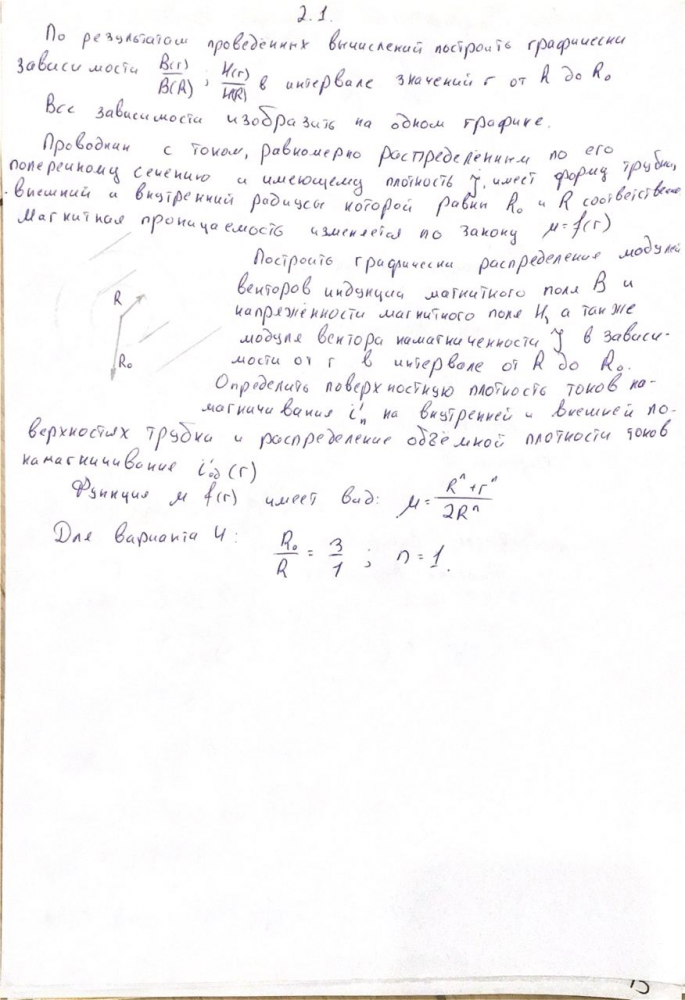 2.1.
По результатом проведённых вычислений построить графически
зависимости B(r)/B(R) ; H(r)/H(R) в интервале значений r от R до R₀
Все зависимости изобразить на одном графике.
Проводник с током, равномерно распределённым по его
поперечному сечению и имеющему плотность j, имеет форму трубки,
внешний и внутренний радиусы которой равны R₀ и R соответственно
Магнитная проницаемость изменяется по закону μ=f(r)
Построить графически распределение модулей
векторов индукции магнитного поля B и
напряжённости магнитного поля H, а также
модуля вектора намагниченности J в зависи-
мости от r в интервале от R до R₀.
R
R₀
Определить поверхностную плотность токов на-
магничивания i'ₙ на внутренней и внешней по-
верхностях трубки и распределение объёмной плотности токов
намагничивание i'об(r)
Функция μ f(r) имеет вид: μ = (Rⁿ+rⁿ)/(2Rⁿ)
Для варианта 4: R₀/R = 3/1 ; n=1.